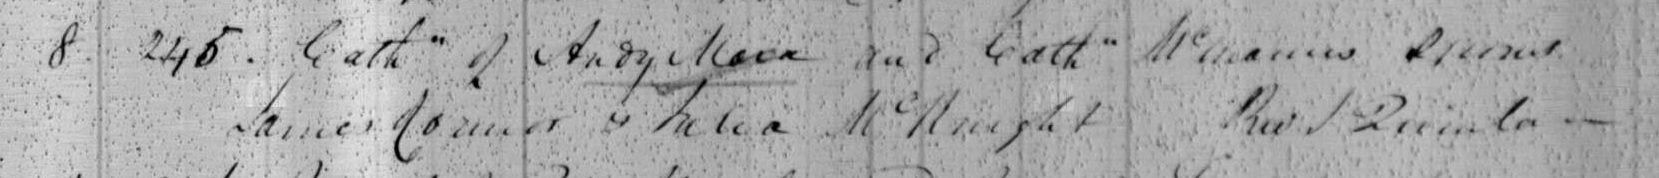 8 245. Cathn of Andy Mara and Cathn McManus Spons
James Connor & Julia McKnight Rev J Quinlan